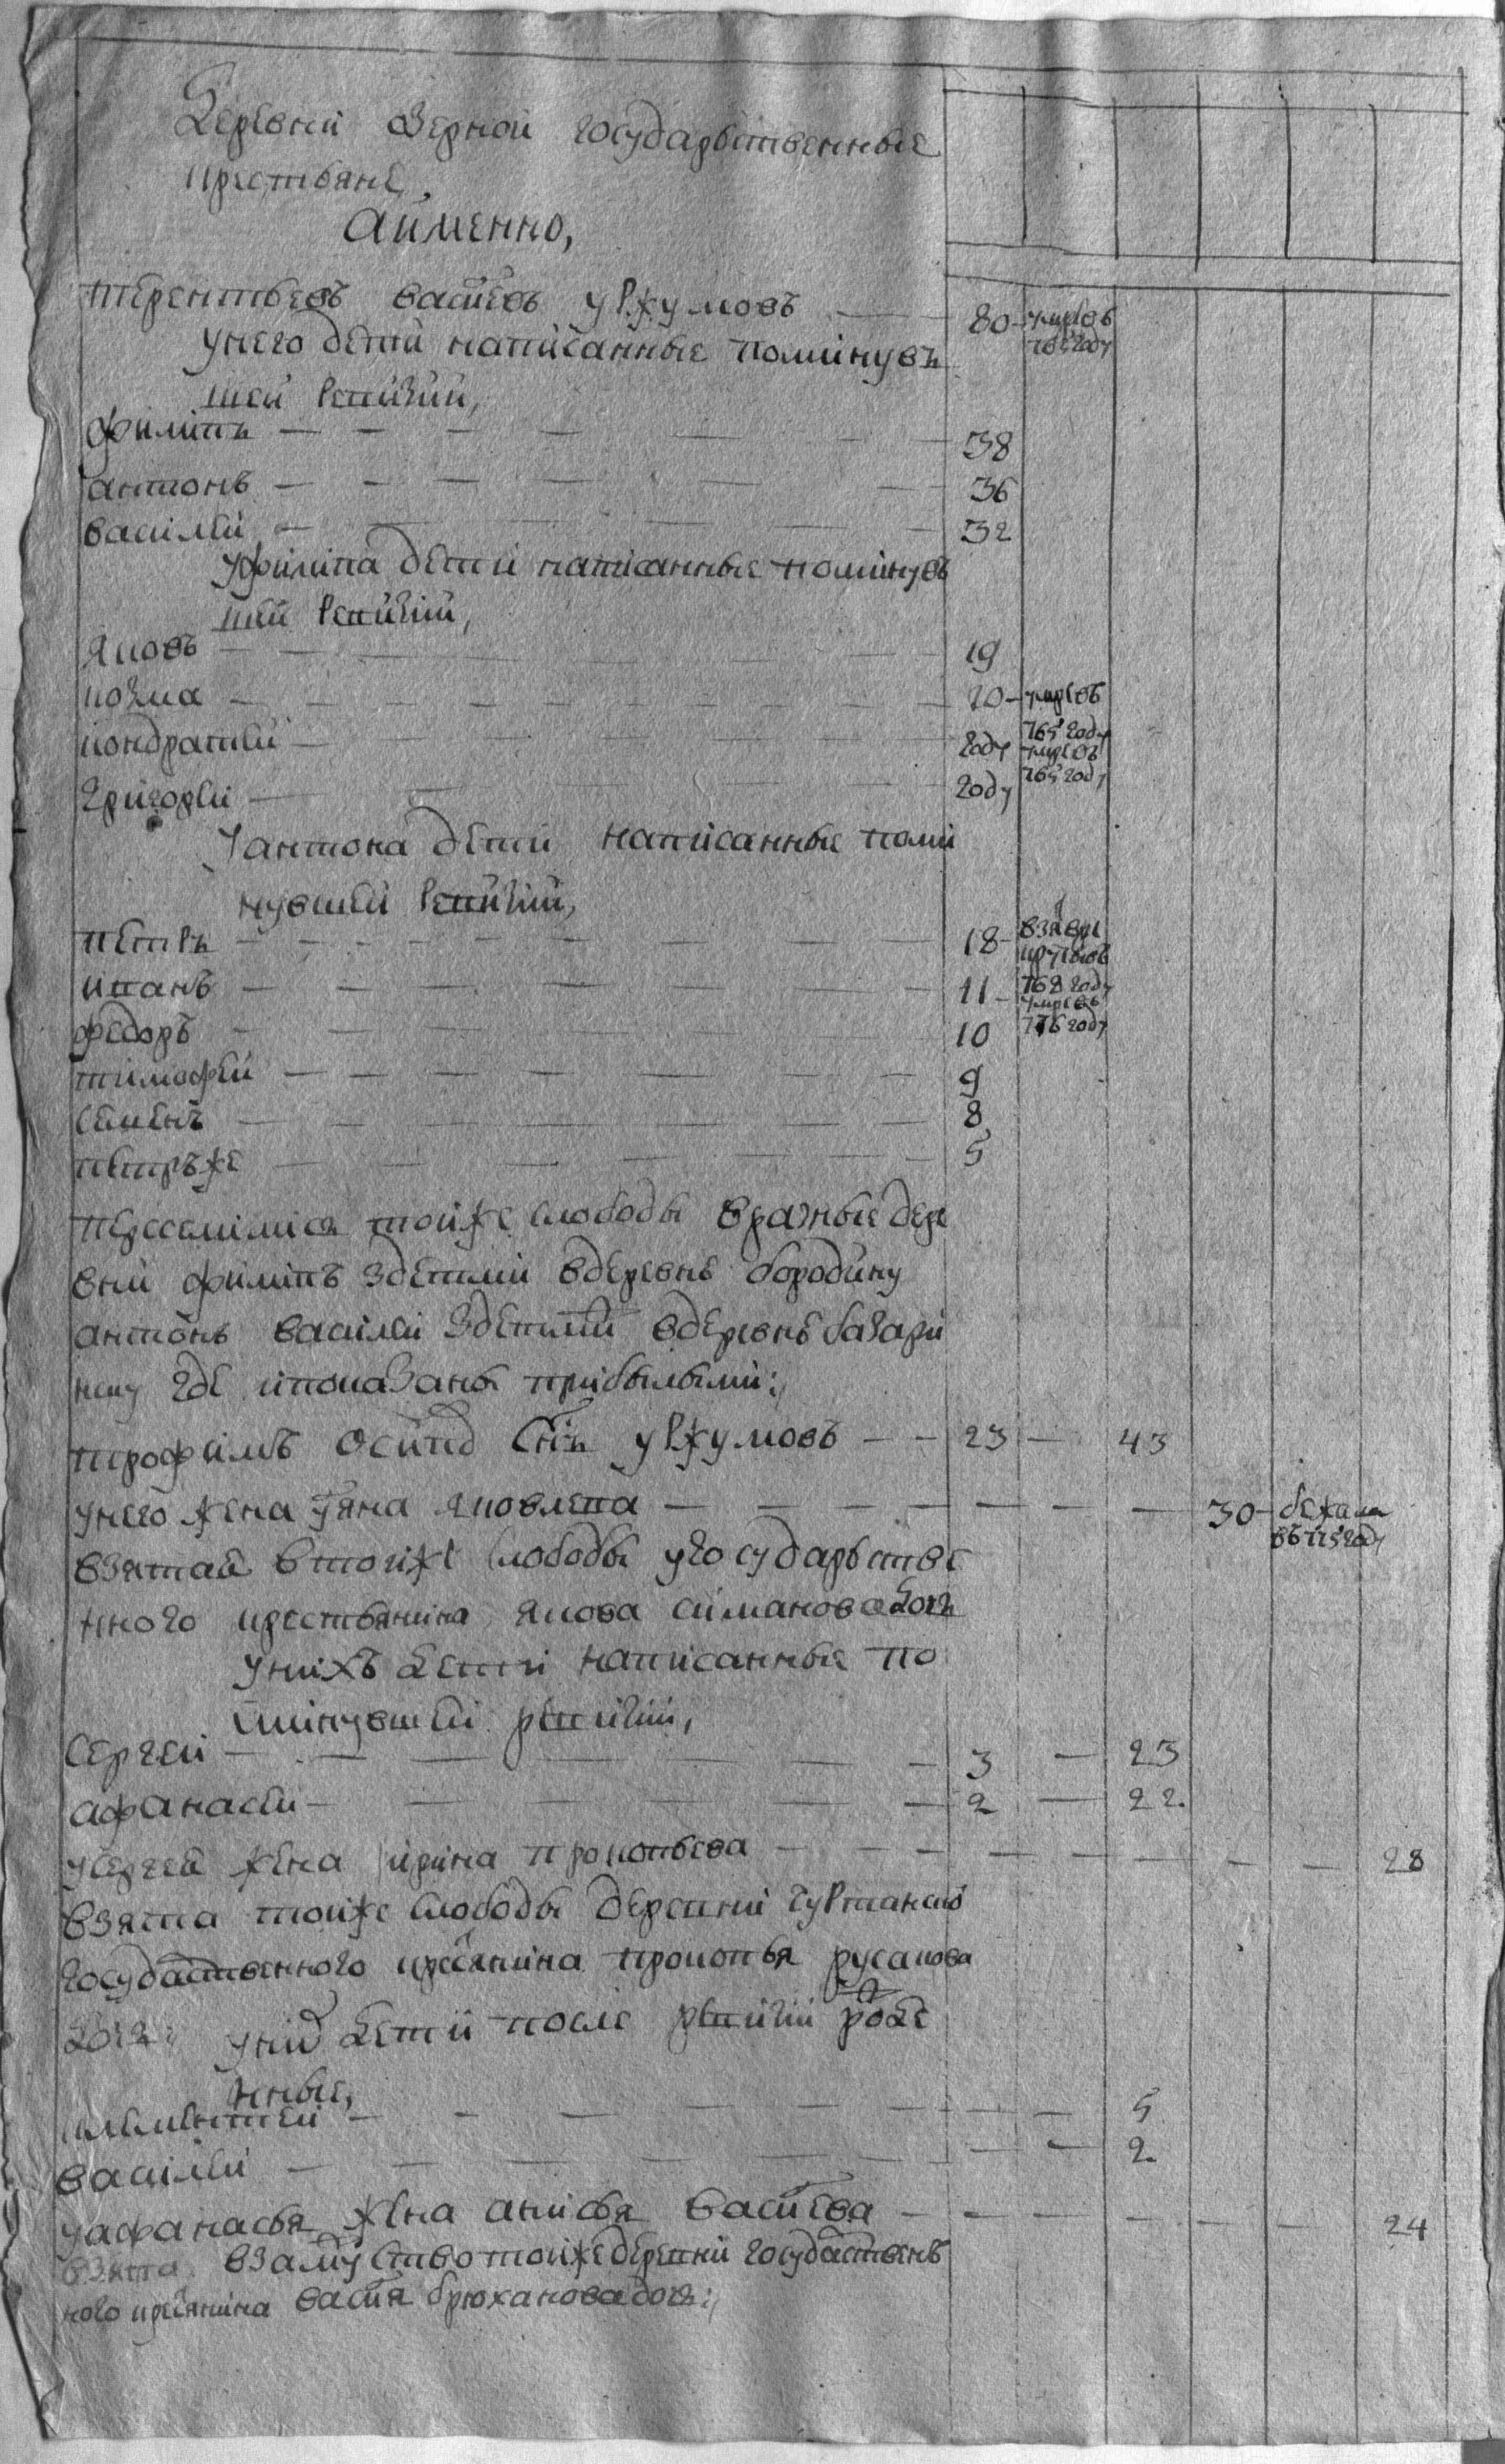 Деревни Зерной государственные
крестьяне,
аимменно,
терентьевъ васи́евъ уржумовъ — 80 — умревъ 765 году
унего дети написанные поминув
шей ревизии,
филипъ — 38
антонъ — 36
василей — 32
уфилипа дети написанные поминув
шей ревизии,
яковъ — 19
козма — 20 — умревъ 765 году
кондратей — году умревъ
григорей — году 765 году
уантона дети написанные поми
нувшей ревизии,
петръ — 18 — взявре круtовъ
иванъ — 11 — 768 году умревъ
федоръ — 10 776 году
тимофей — 9
семенъ — 8
петръже — 5
переселилися тойже слободы вразные дере
вни филипъ здетми вдеревнѣ бородину
антонъ василей здетми вдеревнѣ базари
нску где ипоказаны прибылыми:
трофимъ осипо снъ уржумовъ — 23 — 43
унего жена уяна яковлева — 30 — бежала въ 775 году
взятая втойже слободы угосударстве
нного крестьянина якова симанова дочь
унихъ дети написанные по
минувшей ревизии,
сергей — 3 — 23
афанасей — 2 — 22.
усергея жена ирина прокопьева — 28
взята тойже слободы деревни
государственного крестянина прокопья русакова
дочь: уних дети после ревизии роде
нные,
клементей — 5
василей — 2
уафанасья жена анисья васи́ева — 24
взята взамуство тойже деревни государственъ
ного крестянина васия брюханова дочь: